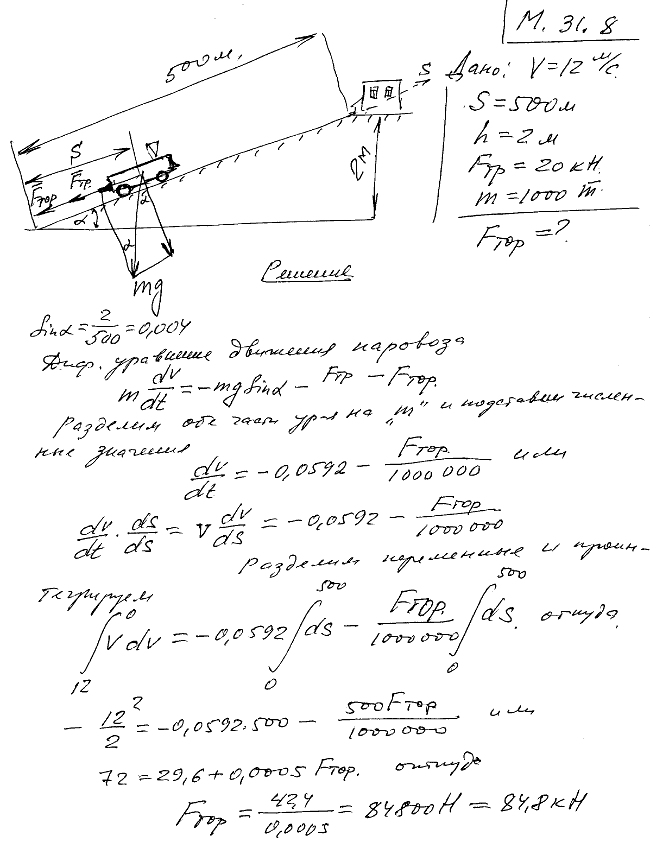 М. 31. 8
500 м.
S
Дано: V=12 м/с
S=500м
h=2м
Fтр=20кН.
m=1000 т.
Fтор=?
S
V
Fтр.
Fтор
2м
α
α
α
mg
Решение
Sinα=2/500=0,004
Диф. уравнение движения паровоза
m dv/dt=-mgSinα-Fтр-Fтор.
Разделим обе части ур-я на „m" и подставим числен-
ные значения
dv/dt=-0,0592-Fтор./1000 000 или
dv/dt·ds/ds=V dv/ds=-0,0592-Fтор/1000000
Разделим переменные и проин-
тегрируем
∫₁₂⁰Vdv=-0,0592∫₀⁵⁰⁰ds-Fтор./1000000∫₀⁵⁰⁰ds. откуда
-12²/2=-0,0592.500-500Fтор/1000000 или
72=29,6+0,0005 Fтор. откуда
Fтор=42,4/0,0005=84800Н=84,8кН